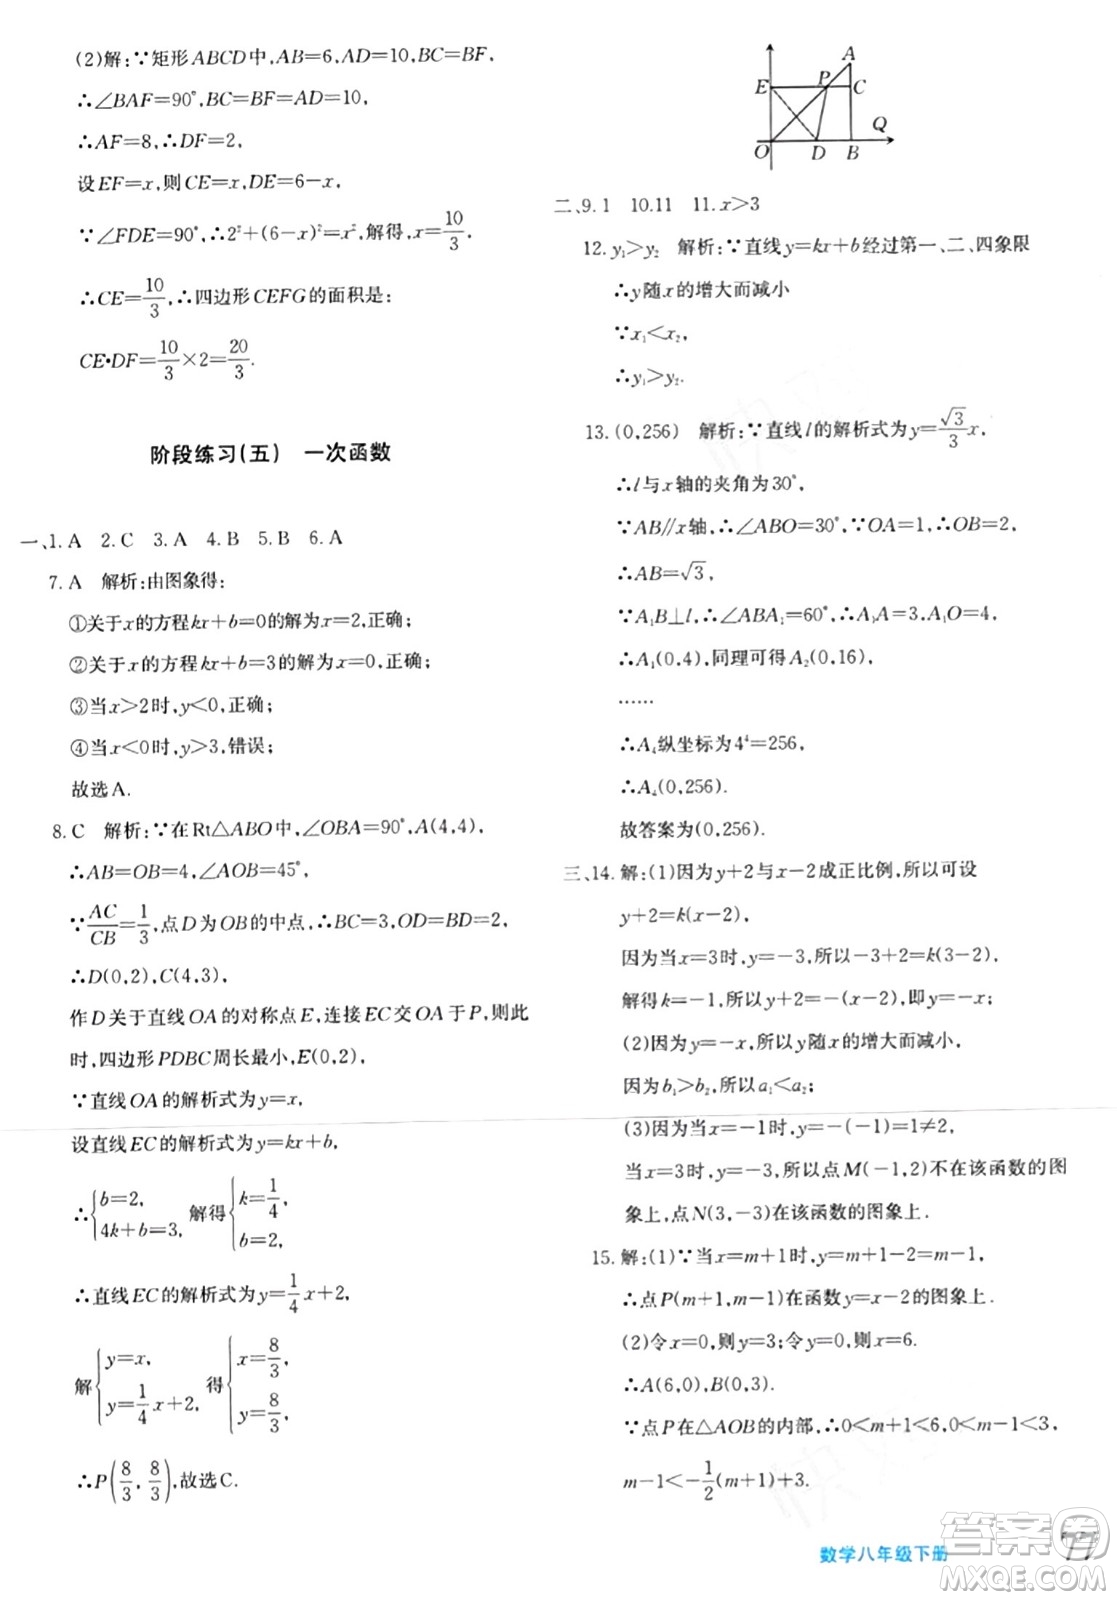 (2)解:∵矩形ABCD中,AB=6,AD=10,BC=BF,
∴∠BAF=90°,BC=BF=AD=10,
∴AF=8,∴DF=2,
设EF=x,则CE=x,DE=6-x,
∵∠FDE=90°,∴2²+(6-x)²=x²,解得,x=10/3.
∴CE=10/3,∴四边形CEFG的面积是:
CE•DF=10/3×2=20/3.
阶段练习(五) 一次函数
一、1.A 2.C 3.A 4.B 5.B 6.A
7.A 解析:由图象得:
①关于x的方程kx+b=0的解为x=2,正确;
②关于x的方程kx+b=3的解为x=0,正确;
③当x>2时,y<0,正确;
④当x<0时,y>3,错误;
故选A.
8.C 解析:∵在Rt△ABO中,∠OBA=90°,A(4,4),
∴AB=OB=4,∠AOB=45°,
∵AC/CB=1/3,点D为OB的中点,∴BC=3,OD=BD=2,
∴D(0,2),C(4,3),
作D关于直线OA的对称点E,连接EC交OA于P,则此
时,四边形PDBC周长最小,E(0,2),
∵直线OA的解析式为y=x,
设直线EC的解析式为y=kx+b,
∴{b=2, 4k+b=3, 解得{k=1/4, b=2,
∴直线EC的解析式为y=1/4x+2,
解{y=x, y=1/4x+2, 得{x=8/3, y=8/3,
∴P(8/3,8/3),故选C.
A
E P C
Q
O D B
二、9.1 10.11 11.x>3
12.y₁>y₂ 解析:∵直线y=kx+b经过第一、二、四象限
∴y随x的增大而减小
∵x₁<x₂,
∴y₁>y₂.
13.(0,256) 解析:∵直线l的解析式为y=√3/3x,
∴l与x轴的夹角为30°,
∵AB//x轴,∴∠ABO=30°,∵OA=1,∴OB=2,
∴AB=√3,
∵A₁B⊥l,∴∠ABA₁=60°,∴A₁A=3,A₁O=4,
∴A₁(0,4),同理可得A₂(0,16),
……
∴A₄纵坐标为4⁴=256,
∴A₄(0,256).
故答案为(0,256).
三、14.解:(1)因为y+2与x-2成正比例,所以可设
y+2=k(x-2),
因为当x=3时,y=-3,所以-3+2=k(3-2),
解得k=-1,所以y+2=-(x-2),即y=-x;
(2)因为y=-x,所以y随x的增大而减小,
因为b₁>b₂,所以a₁<a₂;
(3)因为当x=-1时,y=-(-1)=1≠2,
当x=3时,y=-3,所以点M(-1,2)不在该函数的图
象上,点N(3,-3)在该函数的图象上.
15.解:(1)∵当x=m+1时,y=m+1-2=m-1,
∴点P(m+1,m-1)在函数y=x-2的图象上.
(2)令x=0,则y=3;令y=0,则x=6.
∴A(6,0),B(0,3).
∵点P在△AOB的内部,∴0<m+1<6,0<m-1<3,
m-1<-1/2(m+1)+3.
数学八年级下册 77
答案卷
MXQE.COM